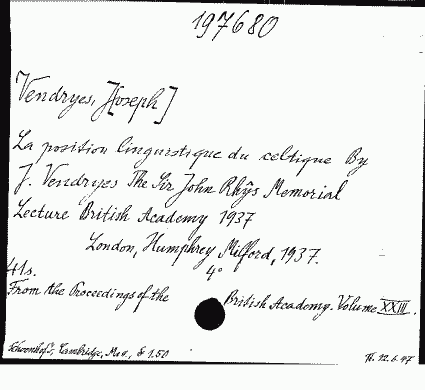 197680
Vendryes, J[oseph]
La position linguistique du celtique By
J. Vendryes The Sir John Rhŷs Memorial
Lecture British Academy 1937
London, Humphrey Milford, 1937.
41s. 4°
From the Proceedings of the British Academy. Volume XXIII.
Schoenhof's, Cambridge, Mass., $ 1.50
12.6.47